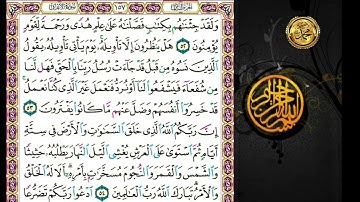 وَلَقَدْ جِئْنَٰهُم بِكِتَٰبٍ فَصَّلْنَٰهُ عَلَىٰ عِلْمٍ هُدًى وَرَحْمَةً لِّقَوْمٍ
يُؤْمِنُونَ ٥٢ هَلْ يَنظُرُونَ إِلَّا تَأْوِيلَهُۥ يَوْمَ يَأْتِى تَأْوِيلُهُۥ يَقُولُ
ٱلَّذِينَ نَسُوهُ مِن قَبْلُ قَدْ جَآءَتْ رُسُلُ رَبِّنَا بِٱلْحَقِّ فَهَل لَّنَا
مِن شُفَعَآءَ فَيَشْفَعُوا۟ لَنَآ أَوْ نُرَدُّ فَنَعْمَلَ غَيْرَ ٱلَّذِى كُنَّا نَعْمَلُ
قَدْ خَسِرُوٓا۟ أَنفُسَهُمْ وَضَلَّ عَنْهُم مَّا كَانُوا۟ يَفْتَرُونَ ٥٣
إِنَّ رَبَّكُمُ ٱللَّهُ ٱلَّذِى خَلَقَ ٱلسَّمَٰوَٰتِ وَٱلْأَرْضَ فِى سِتَّةِ
أَيَّامٍ ثُمَّ ٱسْتَوَىٰ عَلَى ٱلْعَرْشِ يُغْشِى ٱلَّيْلَ ٱلنَّهَارَ يَطْلُبُهُۥ حَثِيثًا
وَٱلشَّمْسَ وَٱلْقَمَرَ وَٱلنُّجُومَ مُسَخَّرَٰتٍۭ بِأَمْرِهِۦٓ أَلَا لَهُ ٱلْخَلْقُ
وَٱلْأَمْرُ تَبَارَكَ ٱللَّهُ رَبُّ ٱلْعَٰلَمِينَ ٥٤ ٱدْعُوا۟ رَبَّكُمْ تَضَرُّعًا
١٥٧
بسم الله الرحمن الرحيم